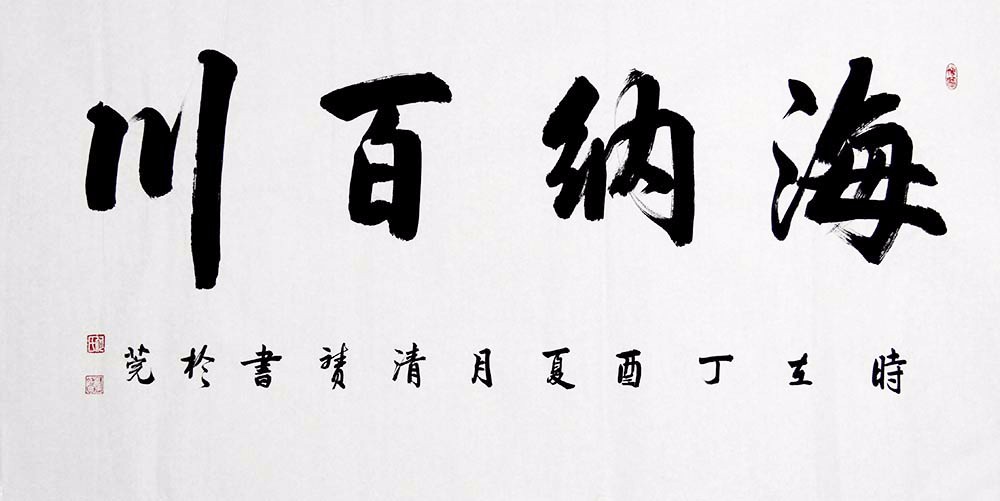 海纳百川
時在丁酉夏月清赟書於莞